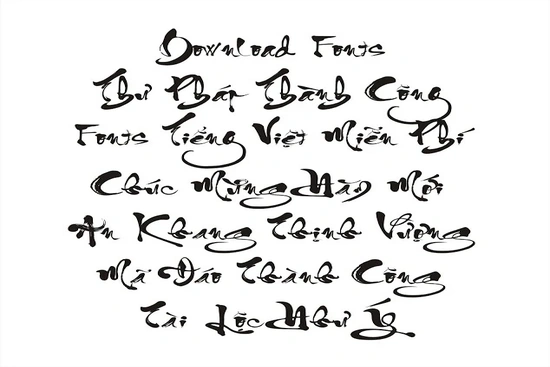 Download Fonts
Thư Pháp Thành Công
Fonts Tiếng Việt Miễn Phí
Chúc Mừng Năm Mới
An Khang Thịnh Vượng
Mã Đáo Thành Công
Tài Lộc Như Ý